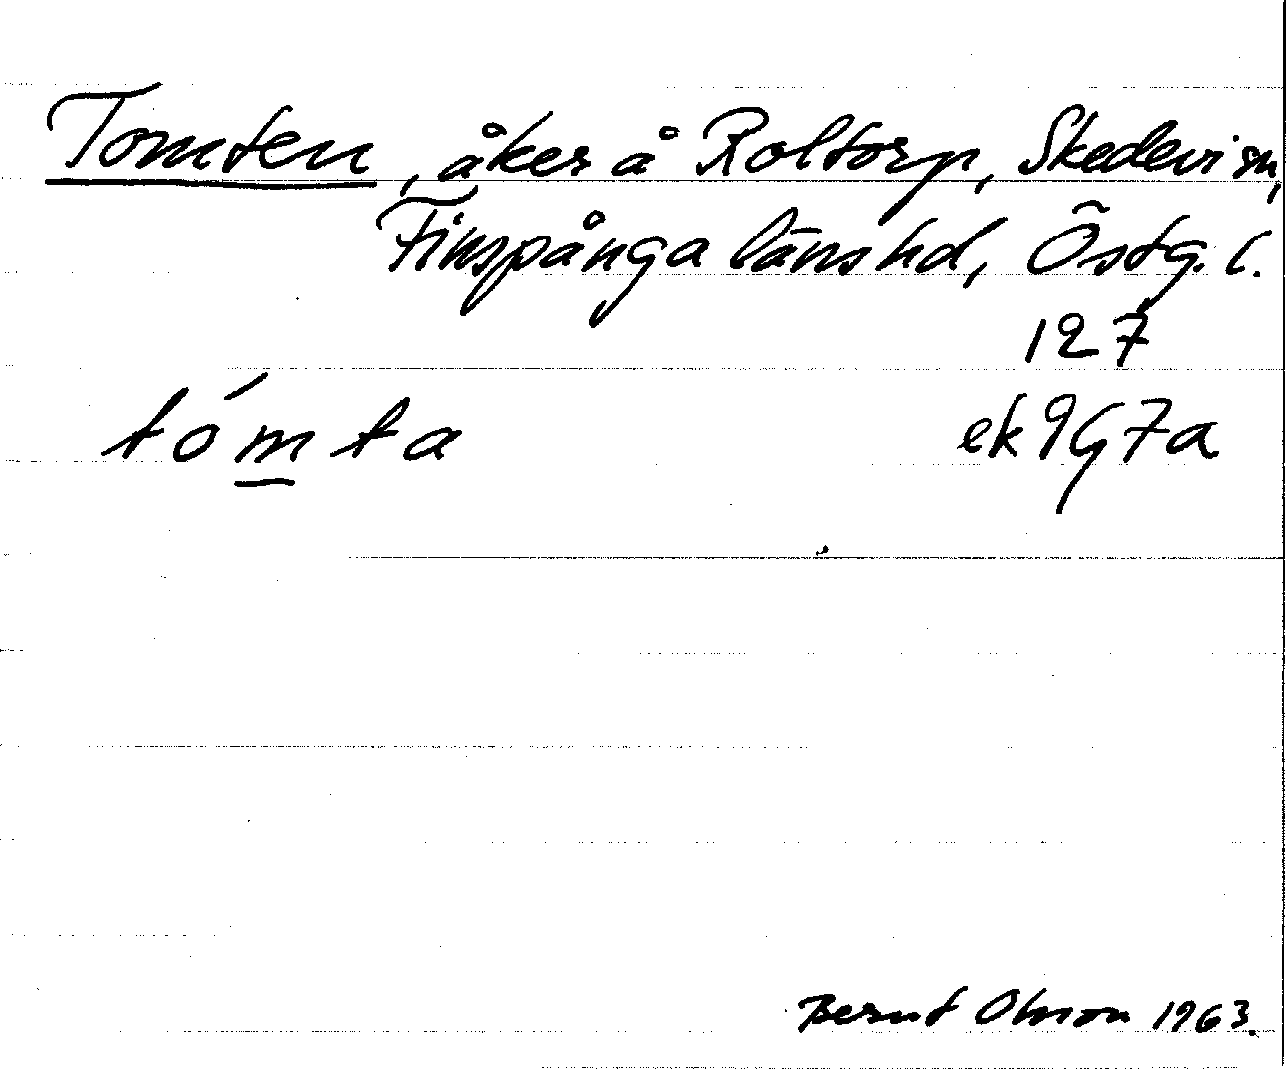 Tomten, åker å Roltorp, Skedevi sn,
Finspånga länshd, Östg. l.
127
tómta ek 9G7a
Bernt Olsson 1963.